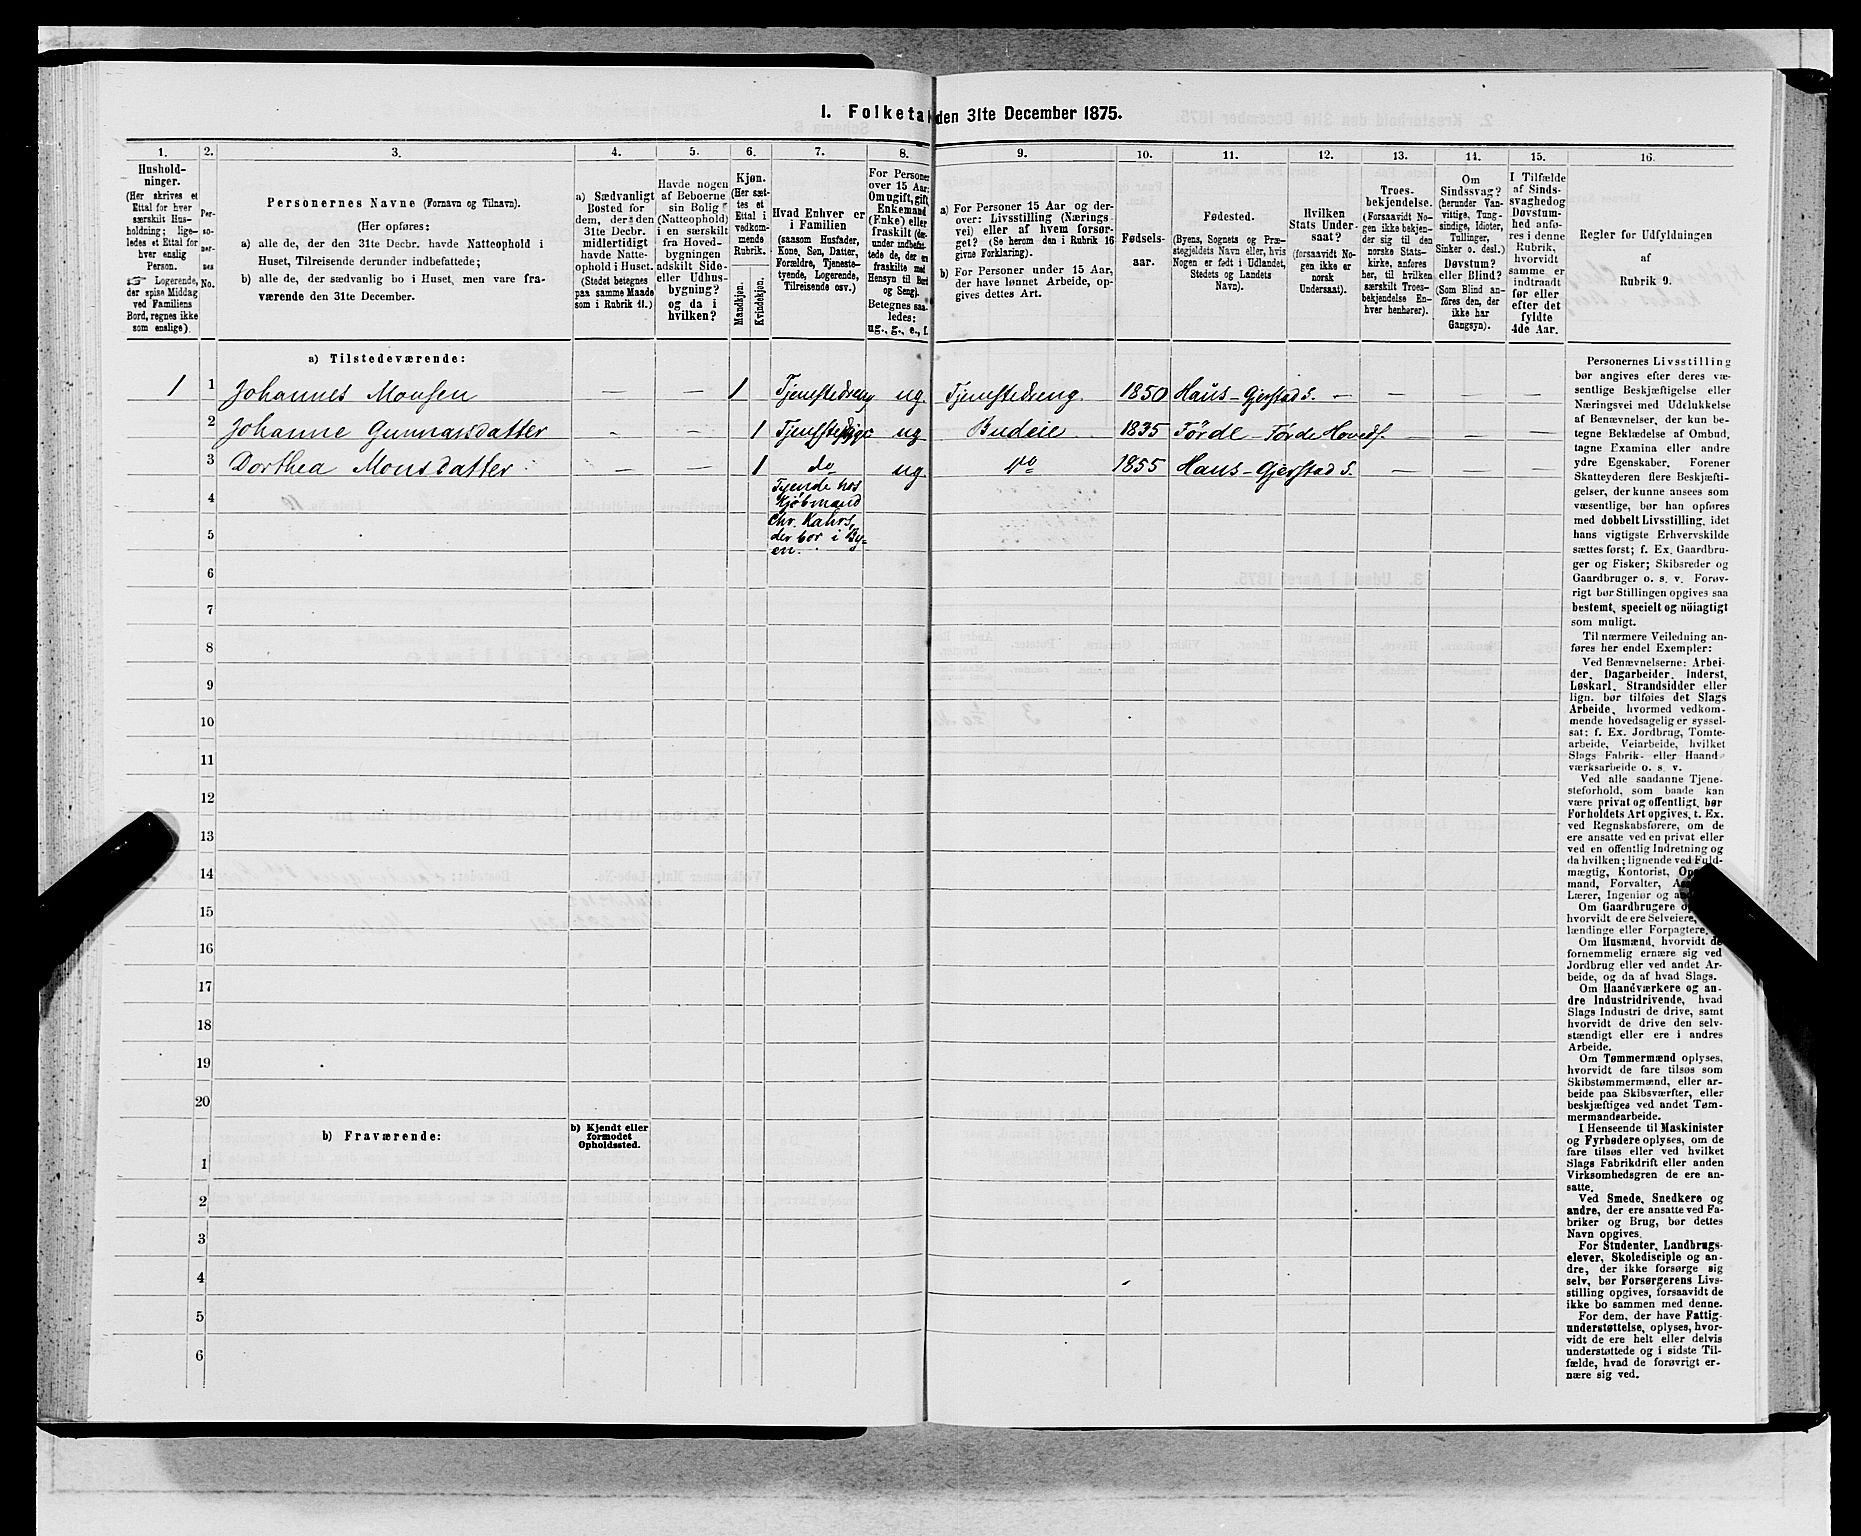 1. Folketal den 31te December 1875.
1. 2. 3. 4. 5. 6. 7. 8. 9. 10. 11. 12. 13. 14. 15. 16.
Hushold-
ninger.
(Her skrives et
Ettal for hver
særskilt Hus-
holdning; lige-
ledes et Ettal for
hver enslig
Person.
☞ Logerende,
der spise Middag
ved Familiens
Bord, regnes ikke
som enslige).
Per-
so-
ner-
nes
No.
Personernes Navne (Fornavn og Tilnavn).
(Her opføres:
a) alle de, der den 31te Decbr. havde Natteophold i
Huset, Tilreisende derunder indbefattede;
b) alle de, der sædvanlig bo i Huset, men vare fra-
værende den 31te December.
a) Sædvanligt
Bosted for
dem, der den
31te Decbr.
midlertidigt
havde Natte-
ophold i Huset.
(Stedet betegnes
paa samme Maade
som i Rubrik 11.)
Havde nogen
af Beboerne
sin Bolig
(Natteophold)
i en særskilt
fra Hoved-
bygningen
adskilt Side-
eller Udhus-
bygning?
og da i
hvilken?
Kjøn.
(Her sæt-
tes et
Ettal i
vedkom-
mende
Rubrik.
Mandkjøn.
Kvindekjøn.
Hvad Enhver er
i Familien
(saasom Husfader,
Kone, Søn, Datter,
Forældre, Tjeneste-
tyende, Logerende,
Tilreisende osv.)
For Personer
over 15 Aar:
Om ugift, gift,
Enkemand
(Enke) eller
fraskilt (der-
under indbefat-
tede de, der ere
fraskilte med
Hensyn til Bord
og Seng).
Betegnes saa-
ledes:
ug., g., e., f.
a) For Personer 15 Aar og der-
over: Livsstilling (Nærings-
vei) eller af hvem forsør-
get? (Se herom den i Rubrik 16
givne Forklaring).
b) For Personer under 15 Aar,
der have lønnet Arbeide, op-
gives dettes Art.
Fødsels-
aar.
Fødested.
(Byens, Sognets og Præ-
stegjeldets Navn eller, hvis
Nogen er født i Udlandet,
Stedets og Landets
Navn).
Hvilken
Stats Under-
saat?
(forsaavidt No-
gen ikke er
norsk
Undersaat).
Troes-
bekjendelse.
(Forsaavidt No-
gen ikke bekjen-
der sig til den
norske Stats-
kirke, anføres
her, til hvilken
særskilt Troes-
bekjendelse En-
hver henhører).
Om
Sindssvag?
(herunder Van-
vittige, Tung-
sindige, Idioter,
Tullinger,
Sinker o. desl.)
Døvstum?
eller Blind?
(Som Blind an-
føres den, der
ikke har
Gangsyn).
I Tilfælde
af Sinds-
svaghed og
Døvstum-
hed anfø-
res i denne
Rubrik,
hvorvidt
samme er
indtraadt
før eller
efter det
fyldte
4de Aar.
Regler for Udfyldningen
af
Rubrik 9.
a) Tilstedeværende:
1 1 Johannes Monsen — — 1 Tjenestedreng ug. Tjenestedreng. 1850 Haus - Gjerstad S. — —
2 Johanne Gunnarsdatter - - 1 Tjenestepige ug Budeie 1835 Førde - Førde Hoveds. — — —
3 Dorthea Monsdatter — — 1 do ug. do 1855 Haus - Gjerstad S. — — —
4 Tyende hos
Kjøbmand
5 Chr. Kahrs,
der bor i By-
en.
6
7
8
9
10
11
12
13
14
15
16
17
18
19
20
b) Fraværende:
b) Kjendt eller
formodet
Opholdssted.
1
2
3
4
5
6
Personernes Livsstilling
bør angives efter deres væ-
sentlige Beskjæftigelse eller
Næringsvei med Udelukkelse
af Benævnelser, der kun be-
tegne Beklædelse af Ombud,
tagne Examina eller andre
ydre Egenskaber. Forener
Skatteyderen flere Beskjæfti-
gelser, der kunne ansees som
væsentlige, bør han opføres
med dobbelt Livsstilling, idet
hans vigtigste Erhvervskilde
sættes først; f. Ex. Gaardbru-
ger og Fisker; Skibsreder og
Gaardbruger o. s. v. Forøv-
rigt bør Stillingen opgives saa
bestemt, specielt og nöiagtigt
som muligt.
Til nærmere Veiledning an-
føres her endel Exempler:
Ved Benævnelserne: Arbei-
der, Dagarbeider, Inderst,
Løskarl, Strandsidder eller
lign. bør tilføies det Slags
Arbeide, hvormed vedkom-
mende hovedsagelig er syssel-
sat: f. Ex. Jordbrug, Tomte-
arbeide, Veiarbeide, hvilket
Slags Fabrik- eller Haand-
værksarbeide o. s. v.
Ved alle saadanne Tjene-
steforhold, som baade kan
være privat og offentligt, bør
Forholdets Art opgives, t. Ex.
ved Regnskabsførere, om de
ere ansatte ved en privat eller
ved en offentlig Indretning og
da hvilken; lignende ved Fuld-
mægtig, Kontorist,
mand, Forvalter,
Lærer, Ingeniør og
Om Gaardbrugere
hvorvidt de ere Selveiere,
lændinge eller Forpagtere.
Om Husmænd, hvorvidt de
fornemmelig ernære sig ved
Jordbrug eller ved andet Ar-
beide, og da af hvad Slags.
Om Haandværkere og an-
dre Industridrivende, hvad
Slags Industri de drive, samt
hvorvidt de drive den selv-
stændigt eller ere i andres
Arbeide.
Om Tømmermænd oplyses,
hvorvidt de fare tilsøs som
Skibstømmermænd, eller ar-
beide paa Skibsværfter, eller
beskjæftiges ved andet Tøm-
mermandsarbeide.
I Henseende til Maskinister
og Fyrbødere oplyses, om de
fare tilsøs eller ved hvilket
Slags Fabrikdrift eller anden
Virksomhedsgren de ere an-
satte.
Ved Smede, Snedkere og
andre, der ere ansatte ved Fa-
briker og Brug, bør dettes
Navn opgives.
For Studenter, Landbrugs-
elever, Skoledisciple og an-
dre, der ikke forsørge sig
selv, bør Forsørgerens Livs-
stilling opgives, forsaavidt de
ikke bo sammen med denne.
For dem, der have Fattig-
understøttelse, oplyses, hvor-
vidt de ere helt eller delvis
understøttede og i sidste Til-
fælde, hvad de forøvrigt er-
nære sig ved.